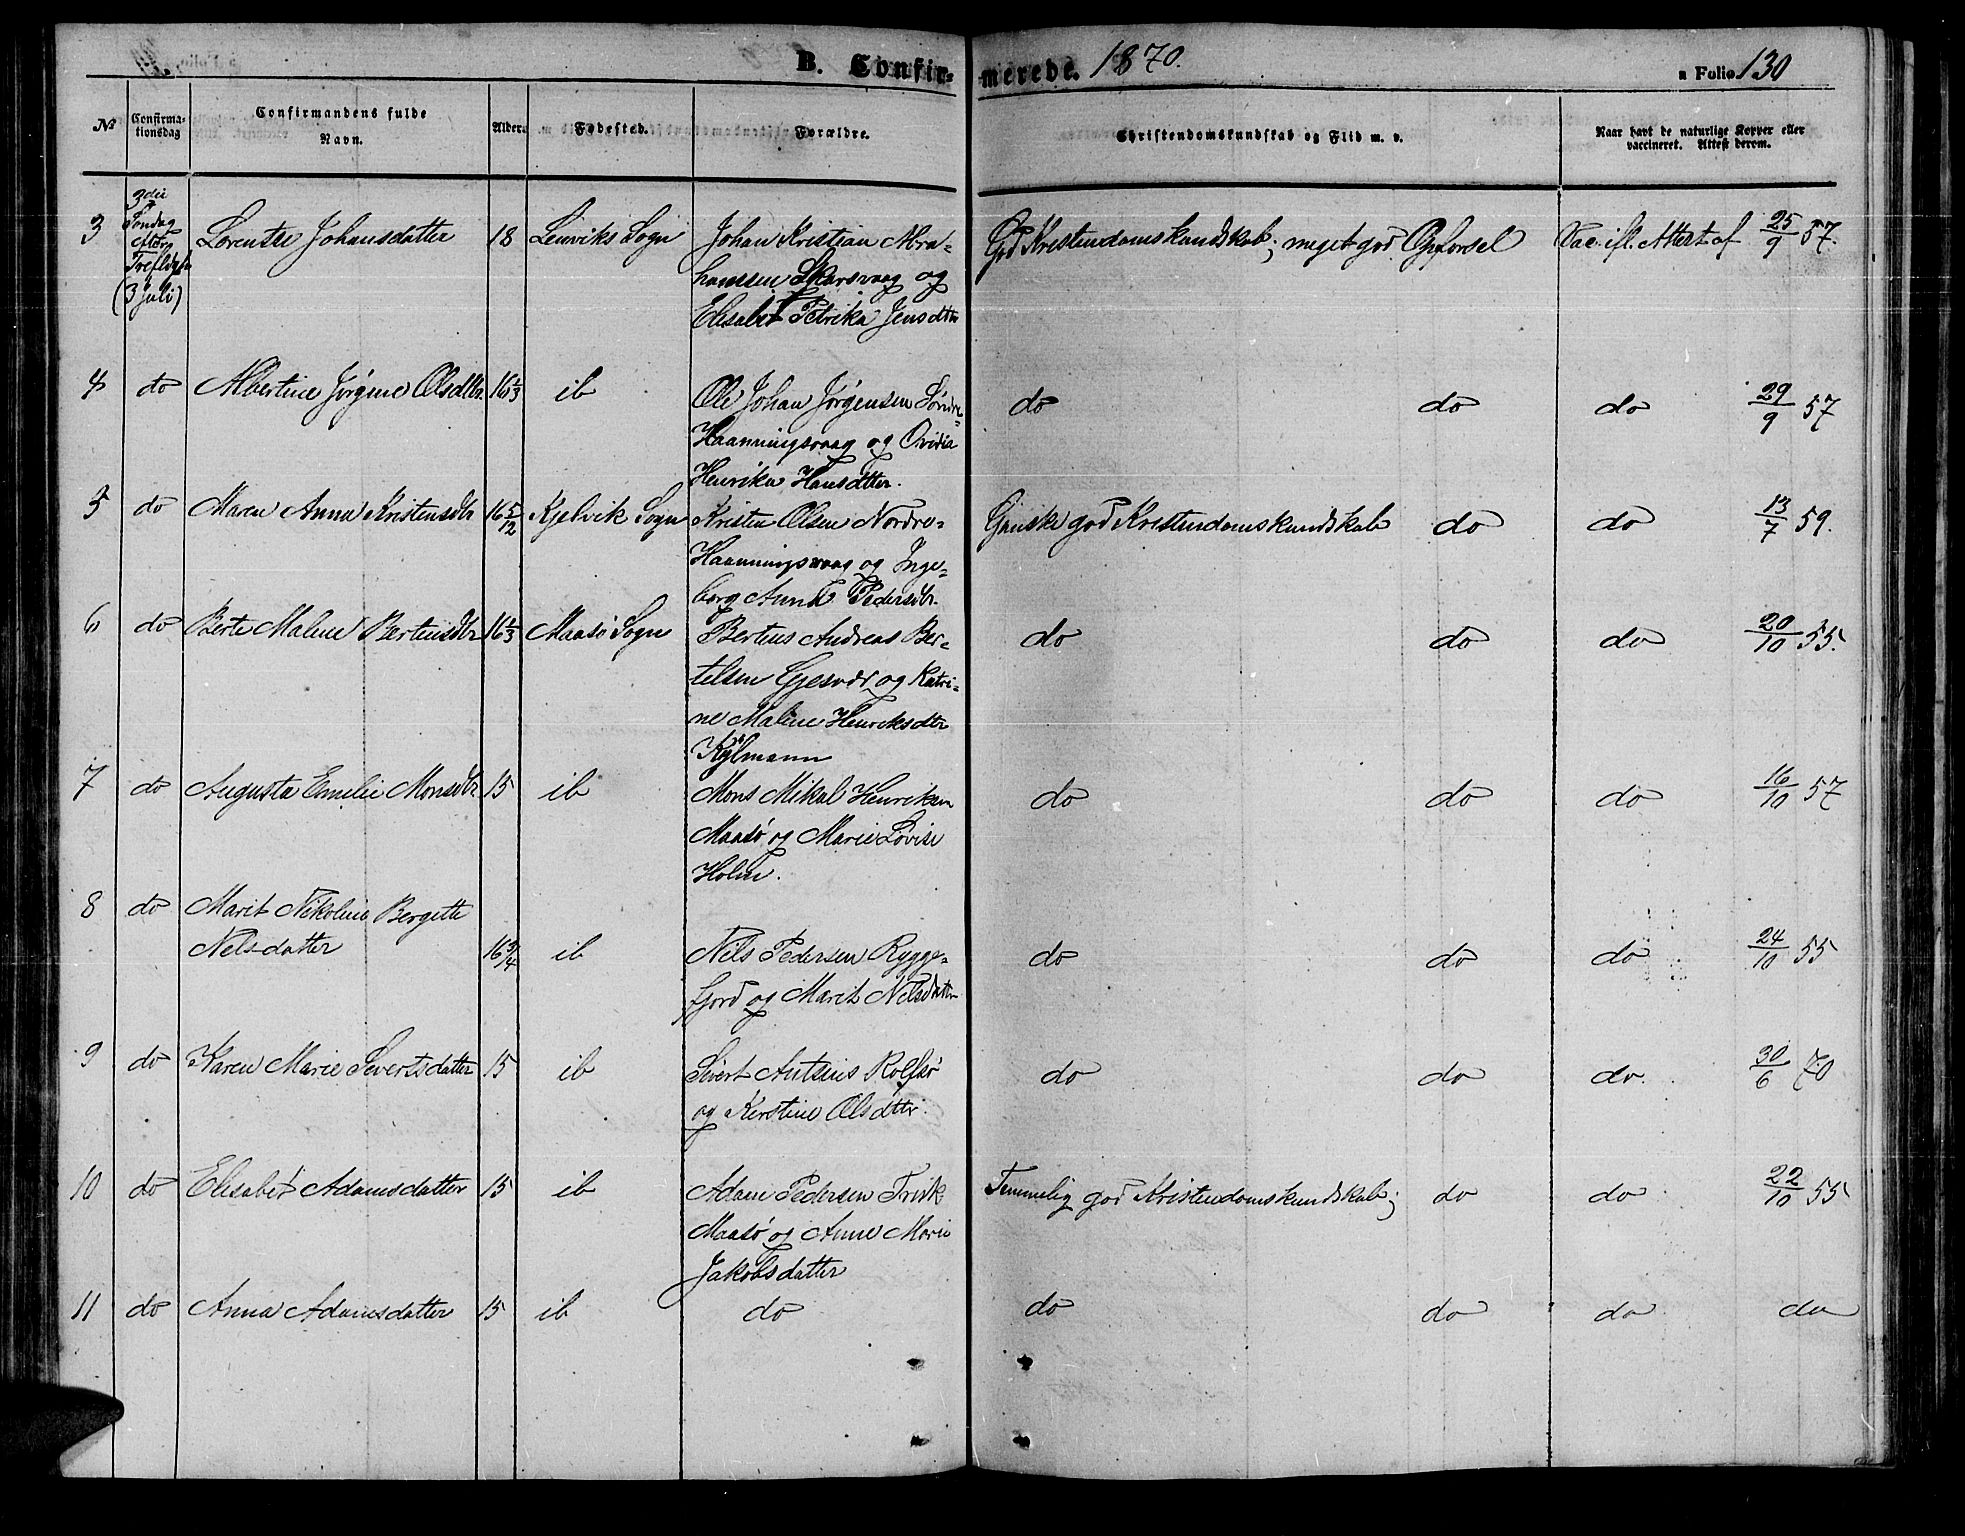 B. Confir-
merede. 1870.
a Folio 130
№
Confirma-
tionsdag
Confirmandens fulde
Navn.
Alder.
Fødested.
Forældre.
Christendomskundskab og Flid m. v.
Naar havt de naturlige Kopper eller
vaccineret. Attest derom.
3
3die
Søndag
efter
Trefldgh
(3 juli)
Lorentze Johansdatter
18
Lenviks Sogn
Johan Kristjan Abra-
hamssen Skarsvaag og
Elisabet Petrika Jensdttr
God Kristendomskundskab; meget god Opførsel
Vac. ifl. Attest af 25/9 57.
4
do
Albertine Jørgine Olsdttr.
16 1/3
ib
Ole Johan Jørgensen Søndre-
Haanningsvaag og Ovidia
Henrika Hansdtter.
do
do
do
29/9 57
5
do
Maren Anna Kristensdtr
16 5/12
Kjelvik Sogn
Kristen Olsen Nordre-
Haanningsvaag og Inge-
borg Anna Pedersdtr.
Ganske god Kristendomskundskab
do
do
13/7 59.
6
do
Berte Malene Bertinsdtr
16 1/3
Maasø Sogn
Bertius Andreas Ber-
telsen Gjesvær og Katri-
ne Malene Henriksdtr
Kylmann
do
do
do
20/10 55.
7
do
Augusta Emilie Monsdtr
15
ib
Mons Mikal Henriksen
Maasø og Marie Lovise
Holm.
do
do
do
16/10 57
8
do
Marit Nikoline Bergette
Nelsdatter
16 3/4
ib
Nils Pedersen Rygge-
fjord og Marit Nelsdatter
do
do
do
24/10 55
9
do
Karen Marie Sivertsdatter
15
ib
Sivert Antsius Rolfsø
og Kerstine Olsdttr.
do
do
do.
30/6 70
10
do
Elisabet Adamsdatter
15
ib
Adam Pedersen Trik
Maasø og Anne Marie
Jakobsdatter
Temmelig god Kristendomskundskab;
do
do
22/10 55
11
do
Anna Adamsdatter
15
ib
do
do
do
do
do